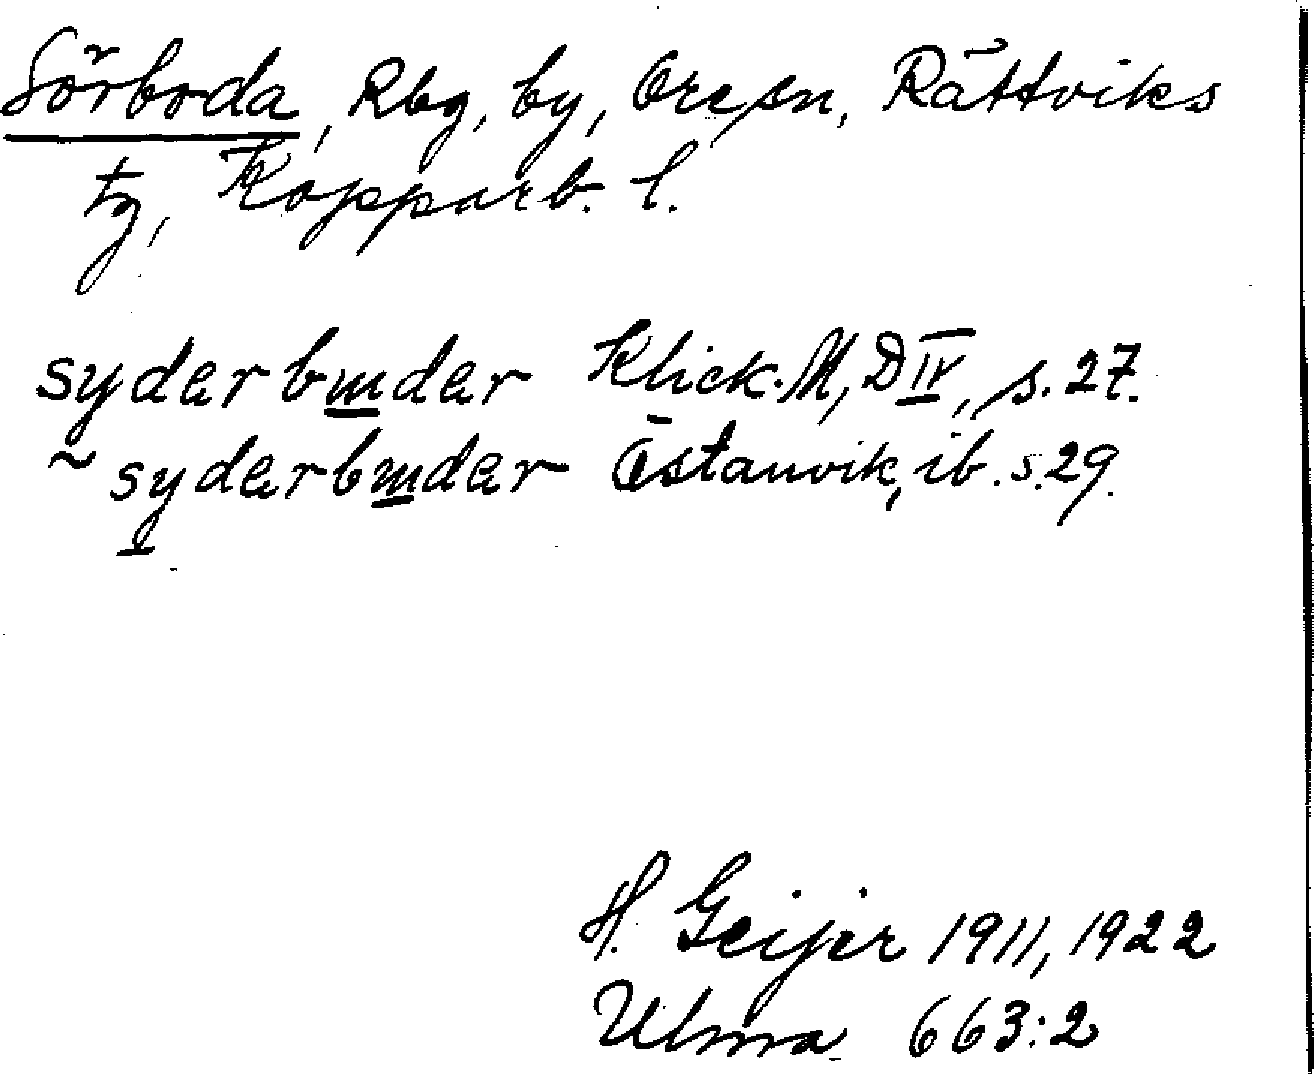 Sörboda, Rbg, by, Ore sn, Rättviks
tg, Kopparb. l.
syderbɯder Klick. M, D IV, s. 27.
~ syderbɯder Östanvik, ib. s. 29.
H. Geijer 1911, 1922
Ulma 663:2